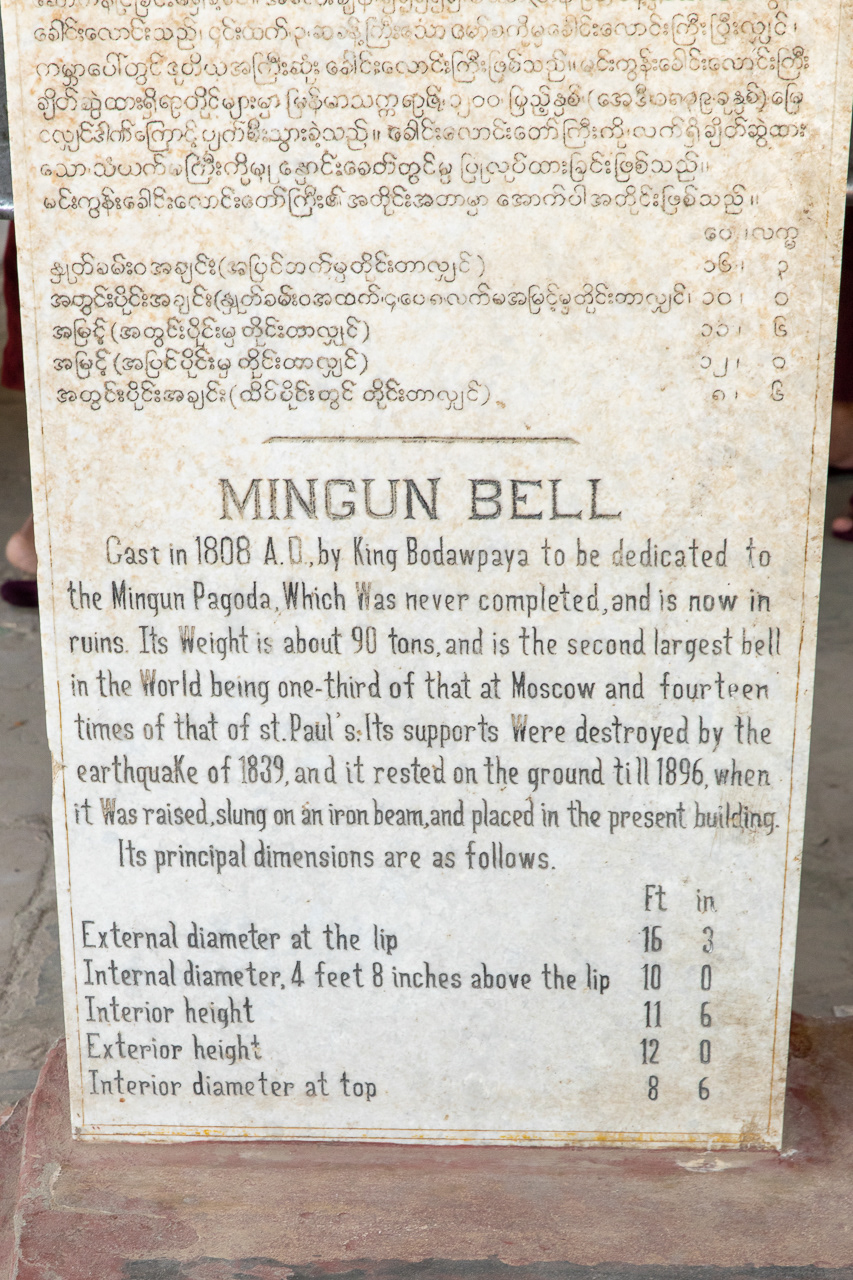 ခေါင်းလောင်းသည်၊ ၎င်းထက်
ကမ္ဘာပေါ်တွင် ဒုတိယအကြီးဆုံး ခေါင်းလောင်းကြီးဖြစ်သည်။ မင်းကွန်းခေါင်းလောင်းကြီး
ချိတ်ဆွဲထားရှိရာတိုင်များမှာ မြန်မာသက္ကရာဇ် ၁၂၀၀ ပြည့်နှစ် (အေဒီ ၁၈၃၉ ခုနှစ်) မြေ
ငလျှင်ဒါဏ်ကြောင့် ပျက်စီးသွားခဲ့သည်။ ခေါင်းလောင်းတော်ကြီးကို လက်ရှိချိတ်ဆွဲထား
သော သံယက်မကြီးကိုမူ နှောင်းခေတ်တွင်မှ ပြုလုပ်ထားခြင်းဖြစ်သည်။
မင်းကွန်းခေါင်းလောင်းတော်ကြီး၏ အတိုင်းအတာမှာ အောက်ပါအတိုင်းဖြစ်သည်။
ပေ ၊ လက္မ
နှုတ်ခမ်းဝအချင်း (အပြင်ဘက်မှတိုင်းတာလျှင်) ၁၆ ၊ ၃
အတွင်းပိုင်းအချင်း (နှုတ်ခမ်းဝအထက် ၄ ပေ ၈ လက်မအမြင့်မှတိုင်းတာလျှင်၊ ၁၀ ၊ ၀
အမြင့် (အတွင်းပိုင်းမှ တိုင်းတာလျှင်) ၁၁ ၊ ၆
အမြင့် (အပြင်ပိုင်းမှ တိုင်းတာလျှင်) ၁၂ ၊ ၀
အတွင်းပိုင်းအချင်း (ထိပ်ပိုင်းတွင် တိုင်းတာလျှင်) ၈ ၊ ၆
MINGUN BELL
Cast in 1808 A.D., by King Bodawpaya to be dedicated to
the Mingun Pagoda, Which Was never completed, and is now in
ruins. Its Weight is about 90 tons, and is the second largest bell
in the World being one-third of that at Moscow and fourteen
times of that of st. Paul's: Its supports Were destroyed by the
earthquaKe of 1839, and it rested on the ground till 1896, when
it Was raised, slung on an iron beam, and placed in the present building.
Its principal dimensions are as follows.
Ft in
External diameter at the lip 16 3
Internal diameter, 4 feet 8 inches above the lip 10 0
Interior height 11 6
Exterior height 12 0
Interior diameter at top 8 6